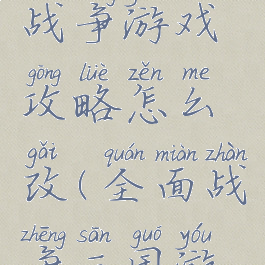 战争游戏
gōng lüè zěn me
攻略怎么
gǎi quán miàn zhàn
改(全面战
zhēng sān guó yóu
争三国游